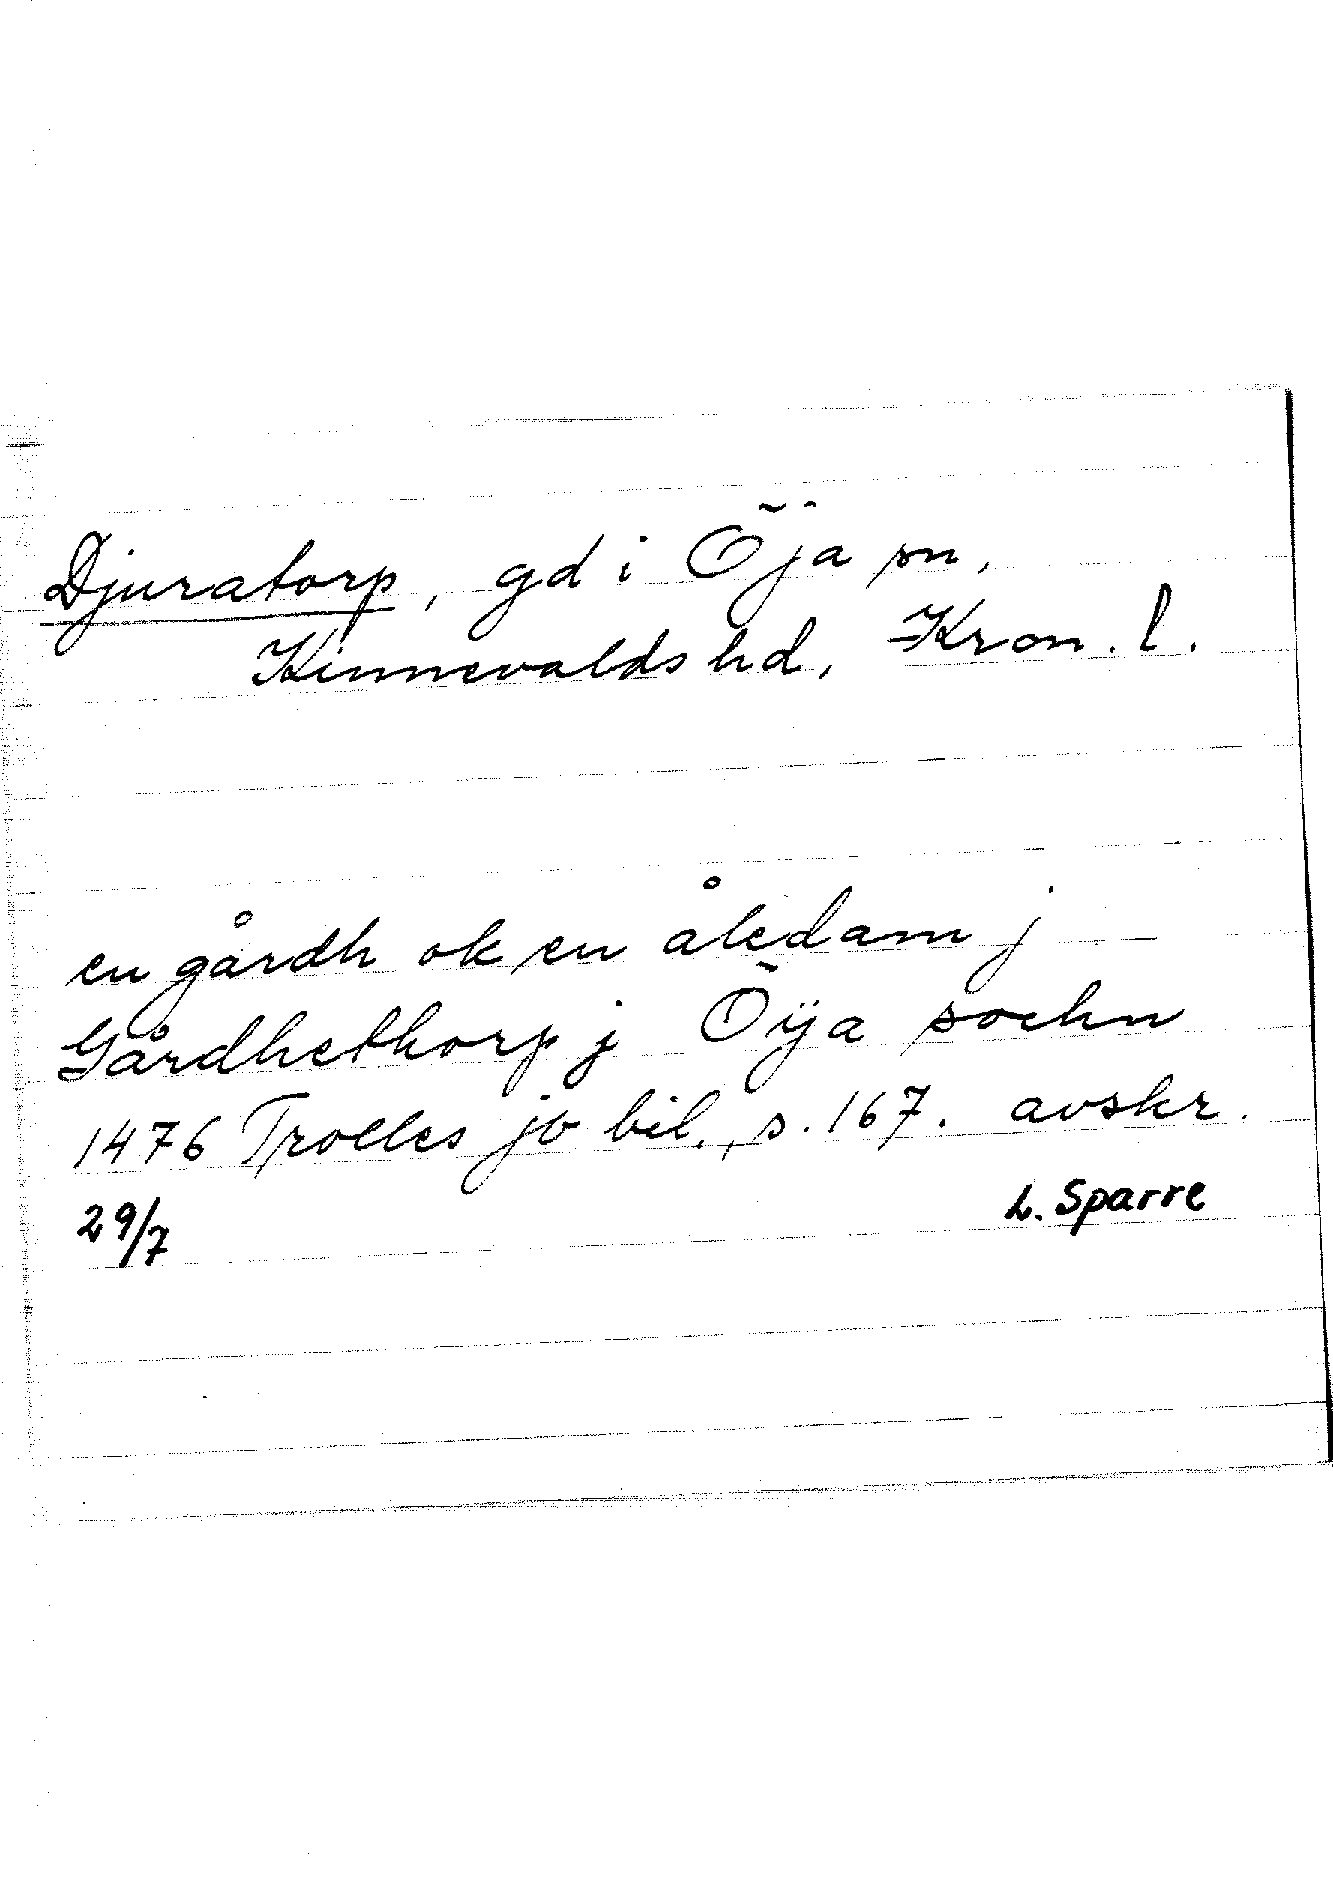 Djuratorp, gd i Öja sn,
Kinnevalds hd, Kron. l.
en gårdh ok en åledam j
Gårdhethorp j Öÿa sochn
1476 Trolles jb bil., s. 167. avskr.
29/7 L. Sparre